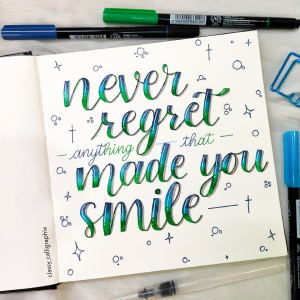 never
regret
- anything - that -
made you
smile -
classy_calligraphix